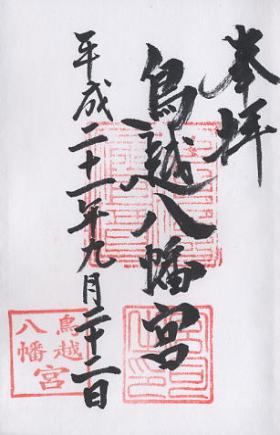 奉拝
鳥越八幡宮
平成二十一年九月二十二日
鳥越
八幡
宮